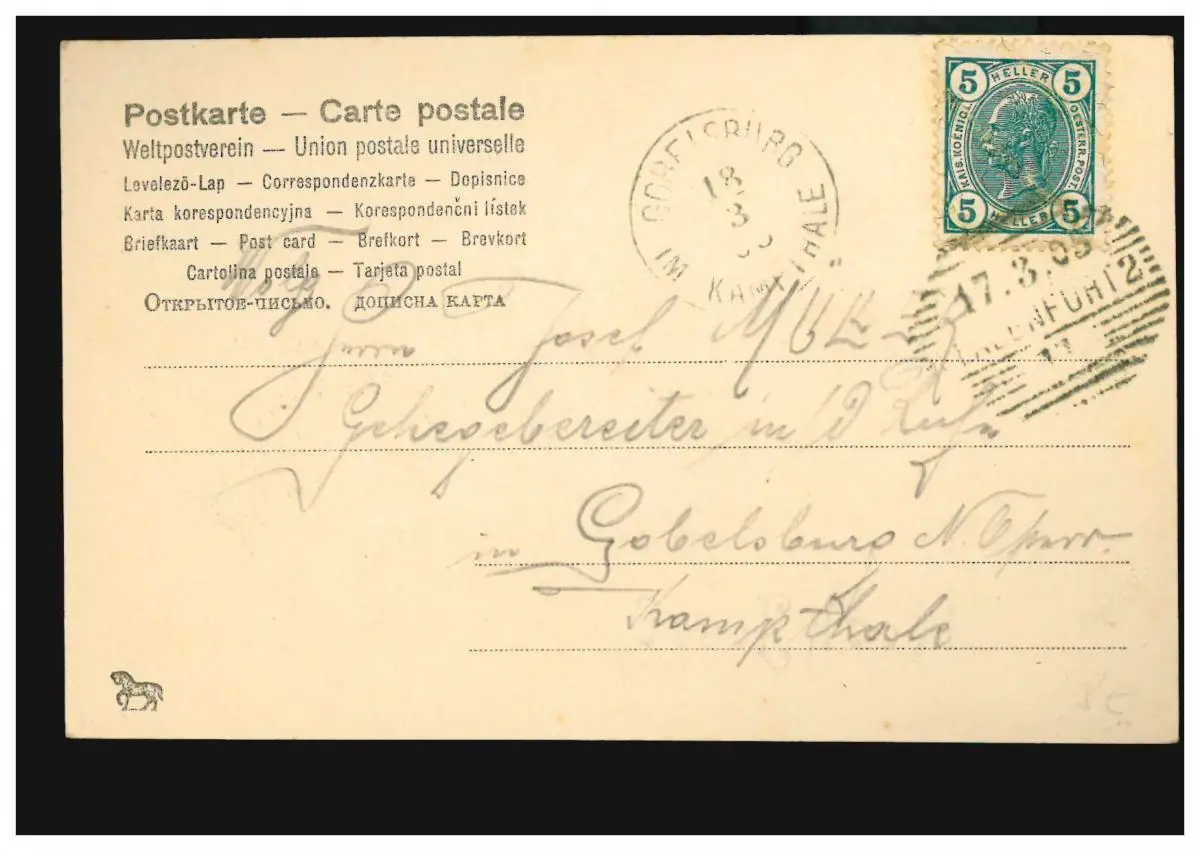 Postkarte — Carte postale
Weltpostverein — Union postale universelle
Levelezö-Lap — Correspondenzkarte — Dopisnice
Karta korespondencyjna — Korespondenční lístek
Briefkaart — Post card — Brefkort — Brevkort
Cartolina postale — Tarjeta postal
Открытое-письмо. дописна карта
5 HELLER 5
KAIS. KOENIGL. OESTERR. POST.
5 HELLER 5
GOBELSBURG
18
3
IM KAMPTHALE
17.3.05
KLAGENFURT 2
Herrn Josef
Gehegebereiter in
in Gobelsburg N.
Kampthale